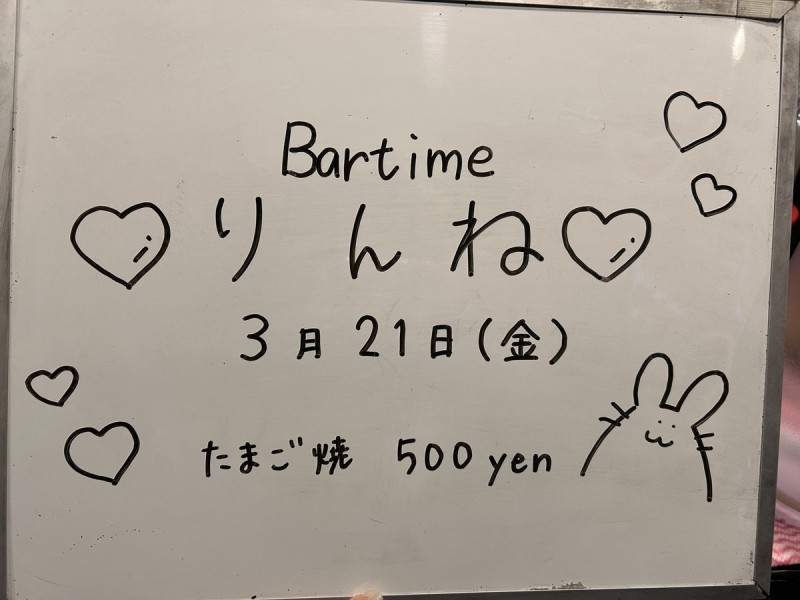 Bartime
りんね
3月21日(金)
たまご焼 500 yen